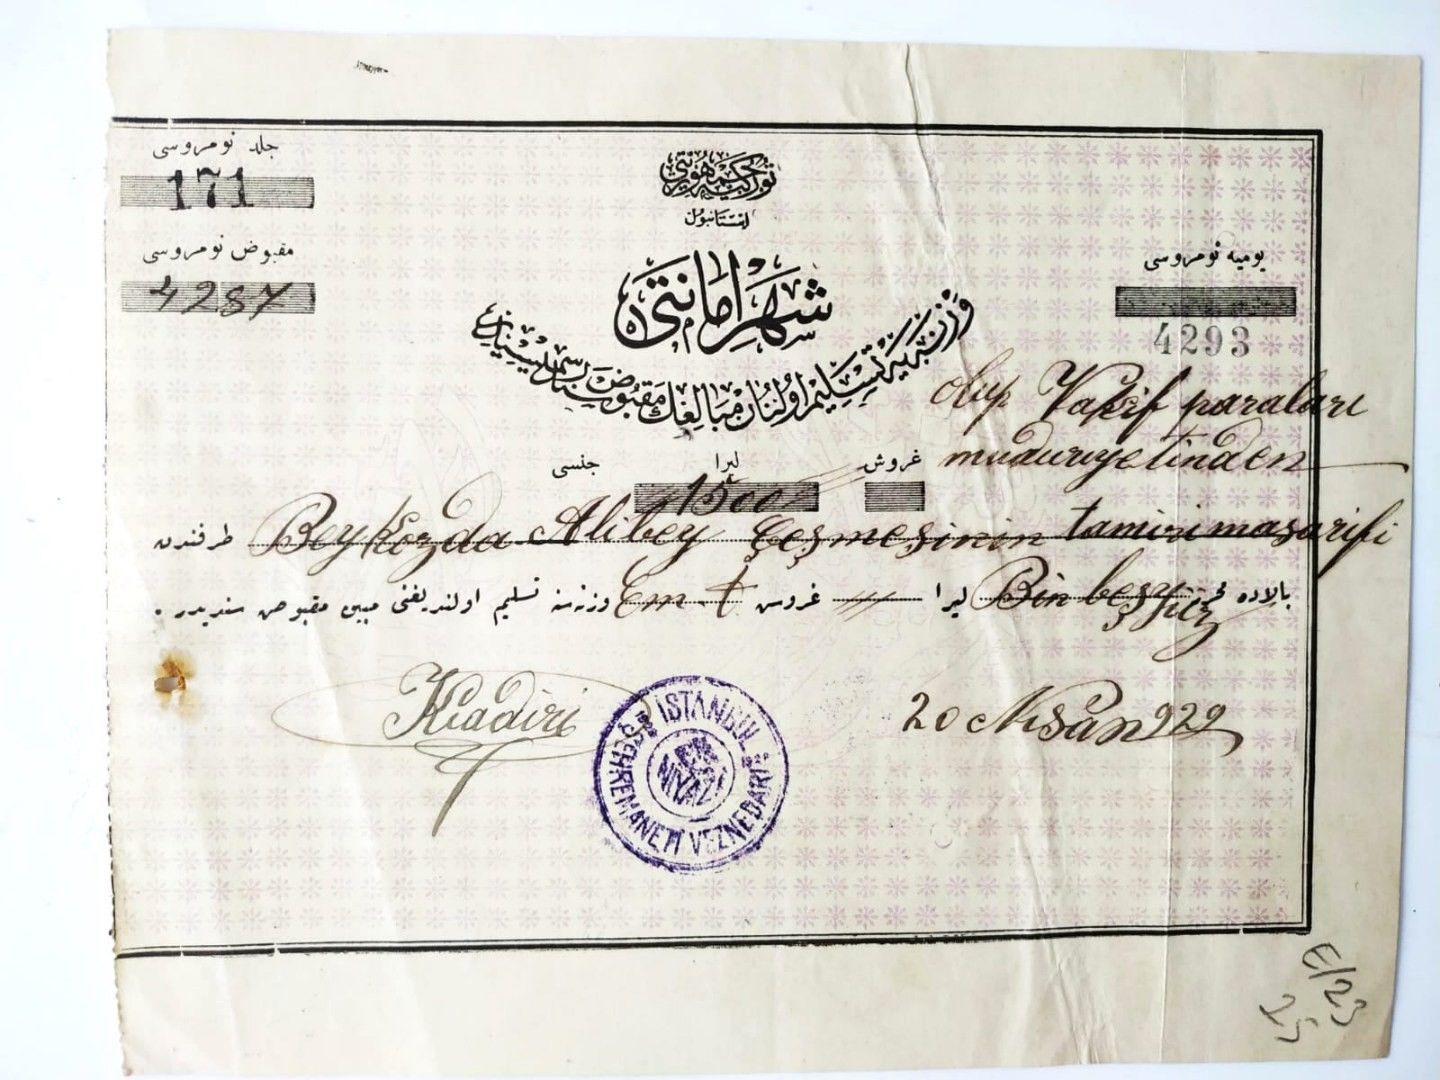 جلد نومروسی
171
مقبوض نومروسی
4287
توركیه جمهوریتی
استانبول
شهر امانتی
وزنه‌یه تسلیم اولنان مبالغك مقبوض
یومیه نومروسی
4293
olup Vakıf paraları
muduriyetinden
جنسی
لیرا
غروش
1500
Beykozda Alibey Çeşmesinin tamiri masarifi
طرفندن
بالاده
Bin beş yüz
لیرا
غروش
Em.t
وزنه‌سنه تسلیم اولندیغنی مبین مقبوض سندیدر .
Kadiri
20 Nisân 929
İSTANBUL
ŞEHREMANETİ VEZNEDARI
NİYAZİ
E/23
25